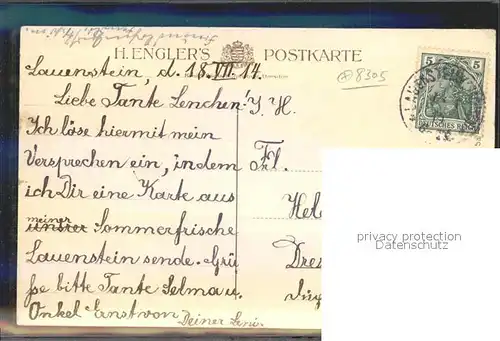 H. ENGLER'S POSTKARTE
Lauenstein, d. 18. VII. 14.
8305
Liebe Tante Lenchen! I. H.
Ich löse hiermit mein
Versprechen ein, indem
ich Dir eine Karte aus
meiner
unsrer Sommerfrische
Lauenstein sende. Grü
ße bitte Tante Selma u.
Onkel Ernst von
Deiner Leni.
Frl.
Hele
Dres
5 5
DEUTSCHES REICH
LAUENSTEIN
privacy protection
Datenschutz